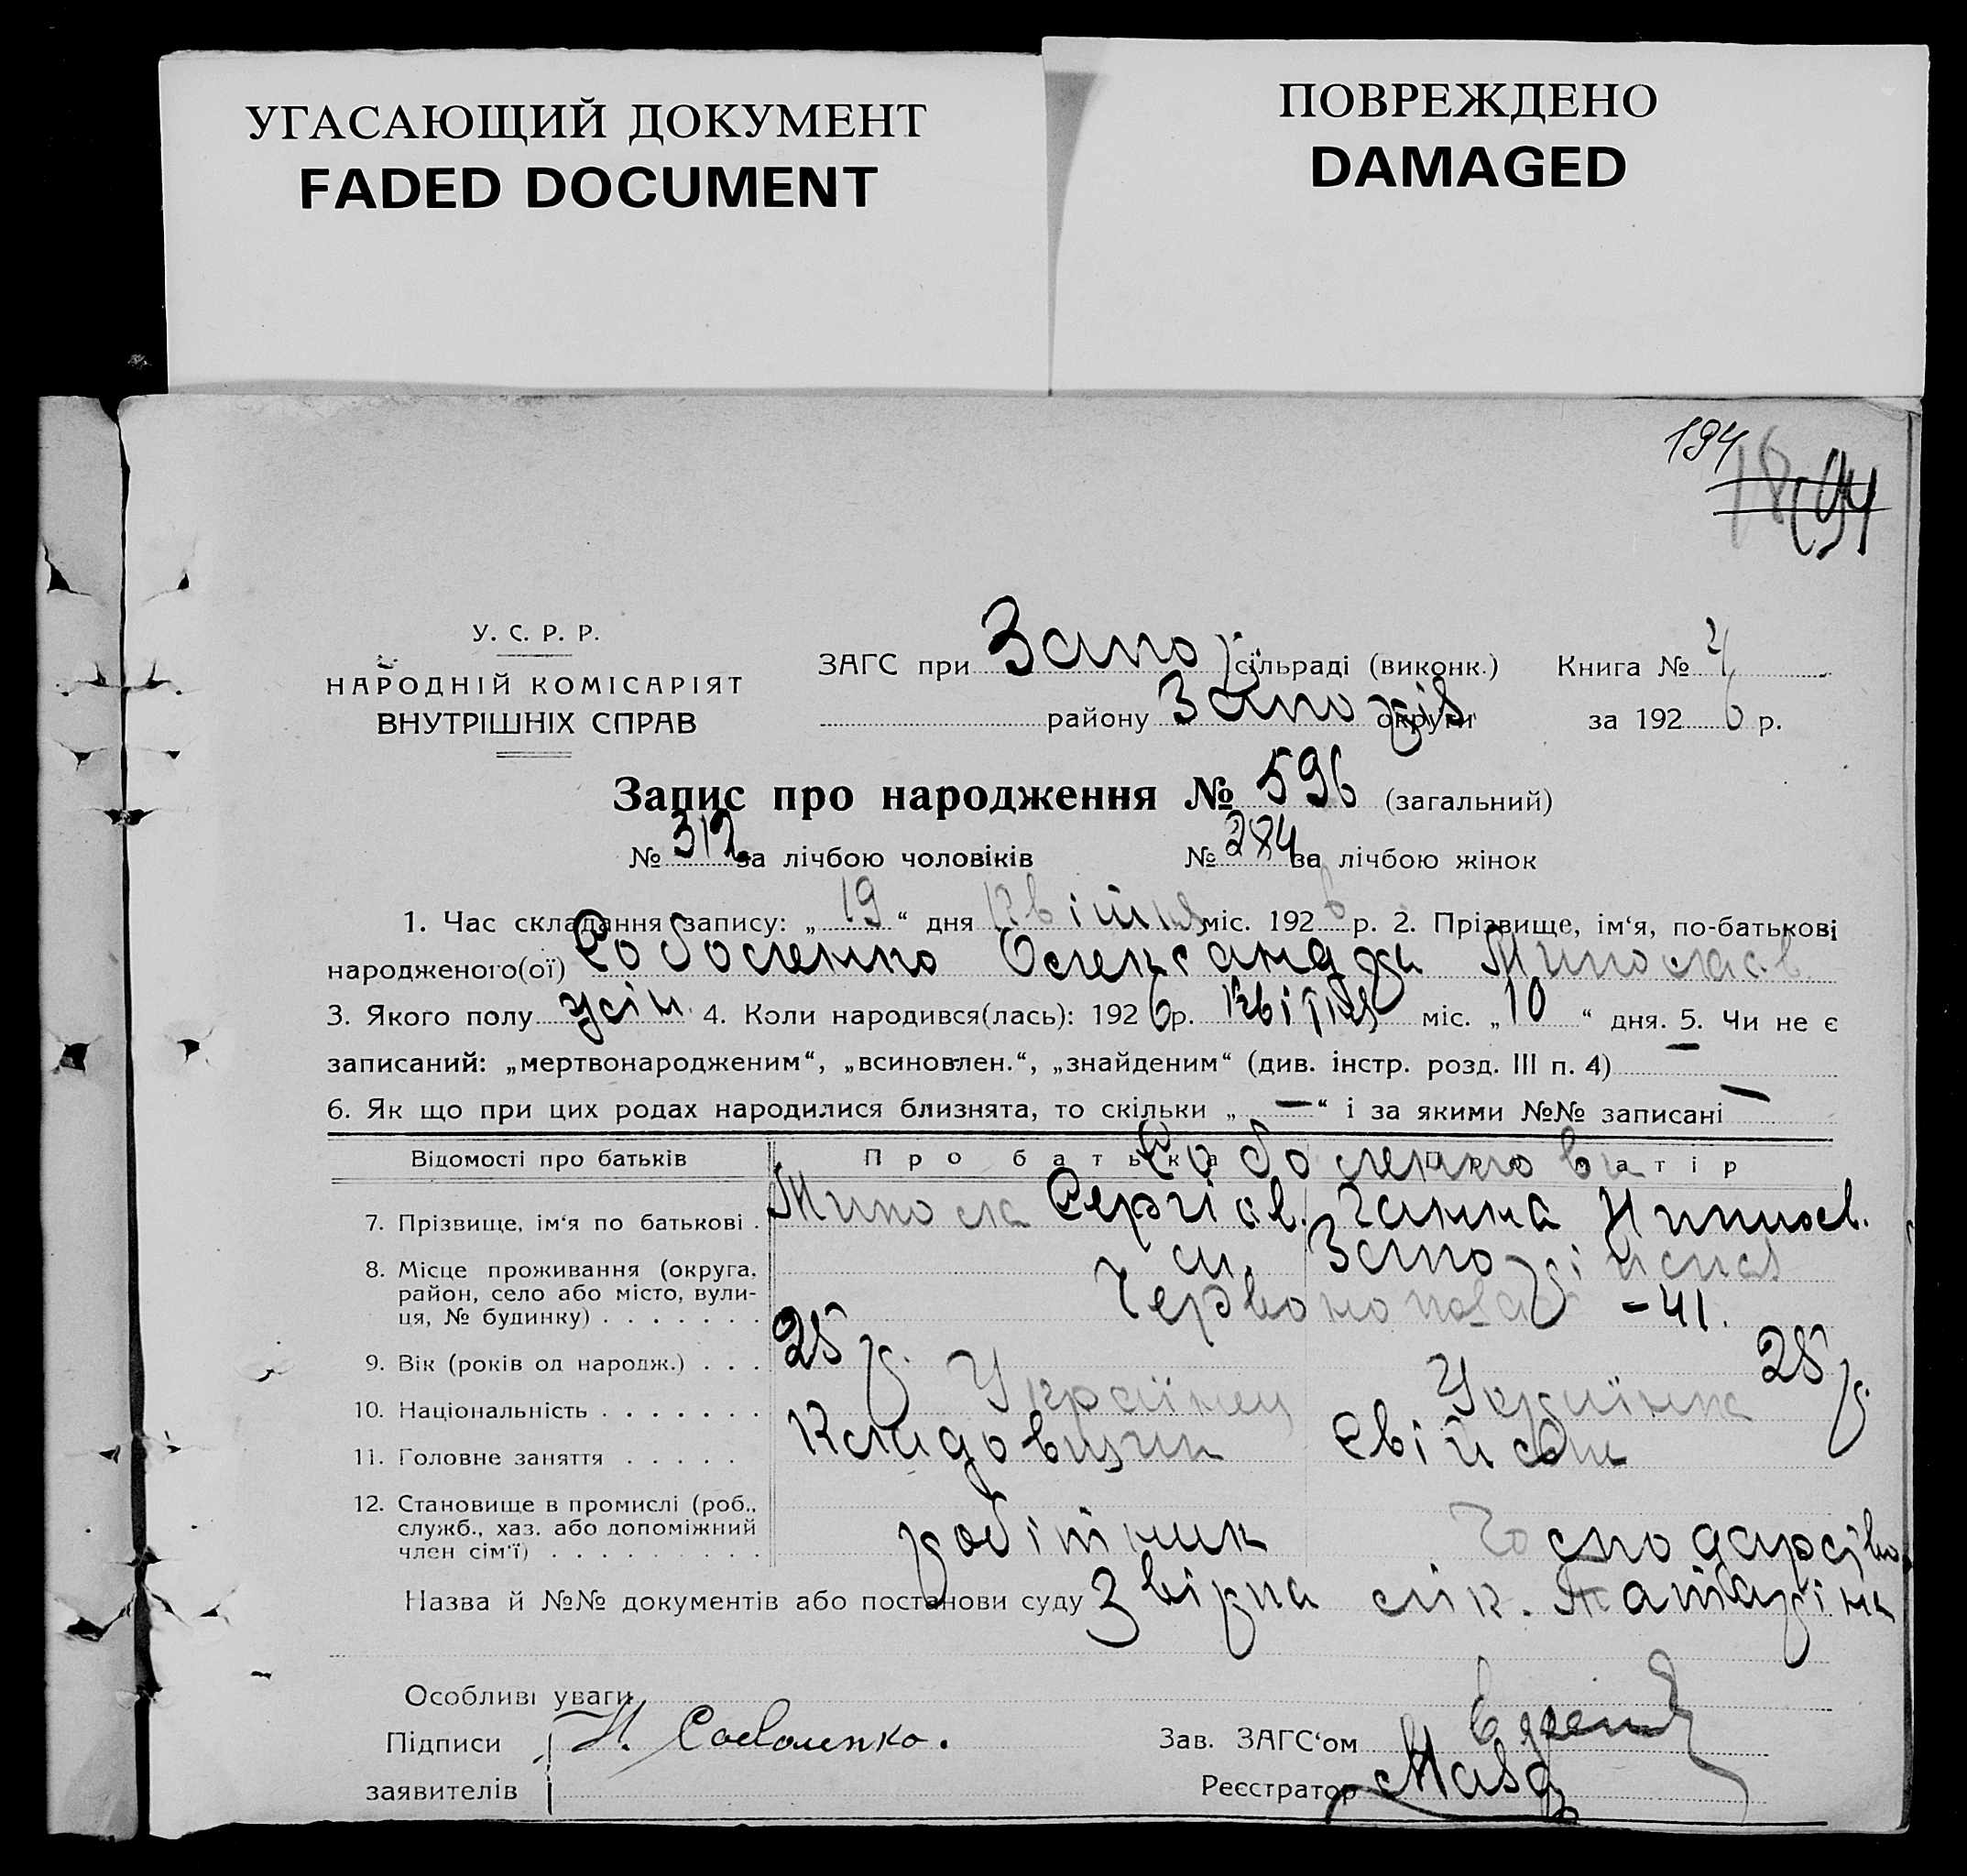 УГАСАЮЩИЙ ДОКУМЕНТ
FADED DOCUMENT
ПОВРЕЖДЕНО
DAMAGED
194
У. С. Р. Р.
НАРОДНІЙ КОМІСАРІЯТ
ВНУТРІШНІХ СПРАВ
ЗАГС при Запор сільраді (виконк.) Книга № 4
району Запоріз округи за 1926 р.
Запис про народження № 596 (загальний)
№ 312 за лічбою чоловіків № 284 за лічбою жінок
1. Час складання запису: „19“ дня Квітня міс. 1926 р. 2. Прізвище, ім‘я, по-батькові
народженого(ої) Соболенко Олександра Миколаєв
3. Якого полу жін. 4. Коли народився(лась): 1926 р. Квітня міс. „10“ дня. 5. Чи не є
записаний: „мертвонародженим“, „всиновлен.“, „знайденим“ (див. інстр. розд. III п. 4) —
6. Як що при цих родах народилися близнята, то скільки „—“ і за якими №№ записані —
Відомості про батьків Про батька Про матір
Соболенкови
7. Прізвище, ім‘я по батькові . Микола Сергієв. Ганна
8. Місце проживання (округа, район, село або місто, вулиця, № будинку) . . . . . . . м. Запоріжжя
- 41.
9. Вік (років од народж.) . . . 25 р. 25 р.
10. Національність . . . . . . . Українец Українка
11. Головне заняття . . . . . Кладовщик
12. Становище в промислі (роб., служб., хаз. або допоміжний член сім‘ї) . . . . . . . . . робітник Господарство
Назва й №№ документів або постанови суду Звірка лік. Татаріна
Особливі уваги
Підписи Н. Соболенко. Зав. ЗАГС‘ом
заявителів Реєстратор